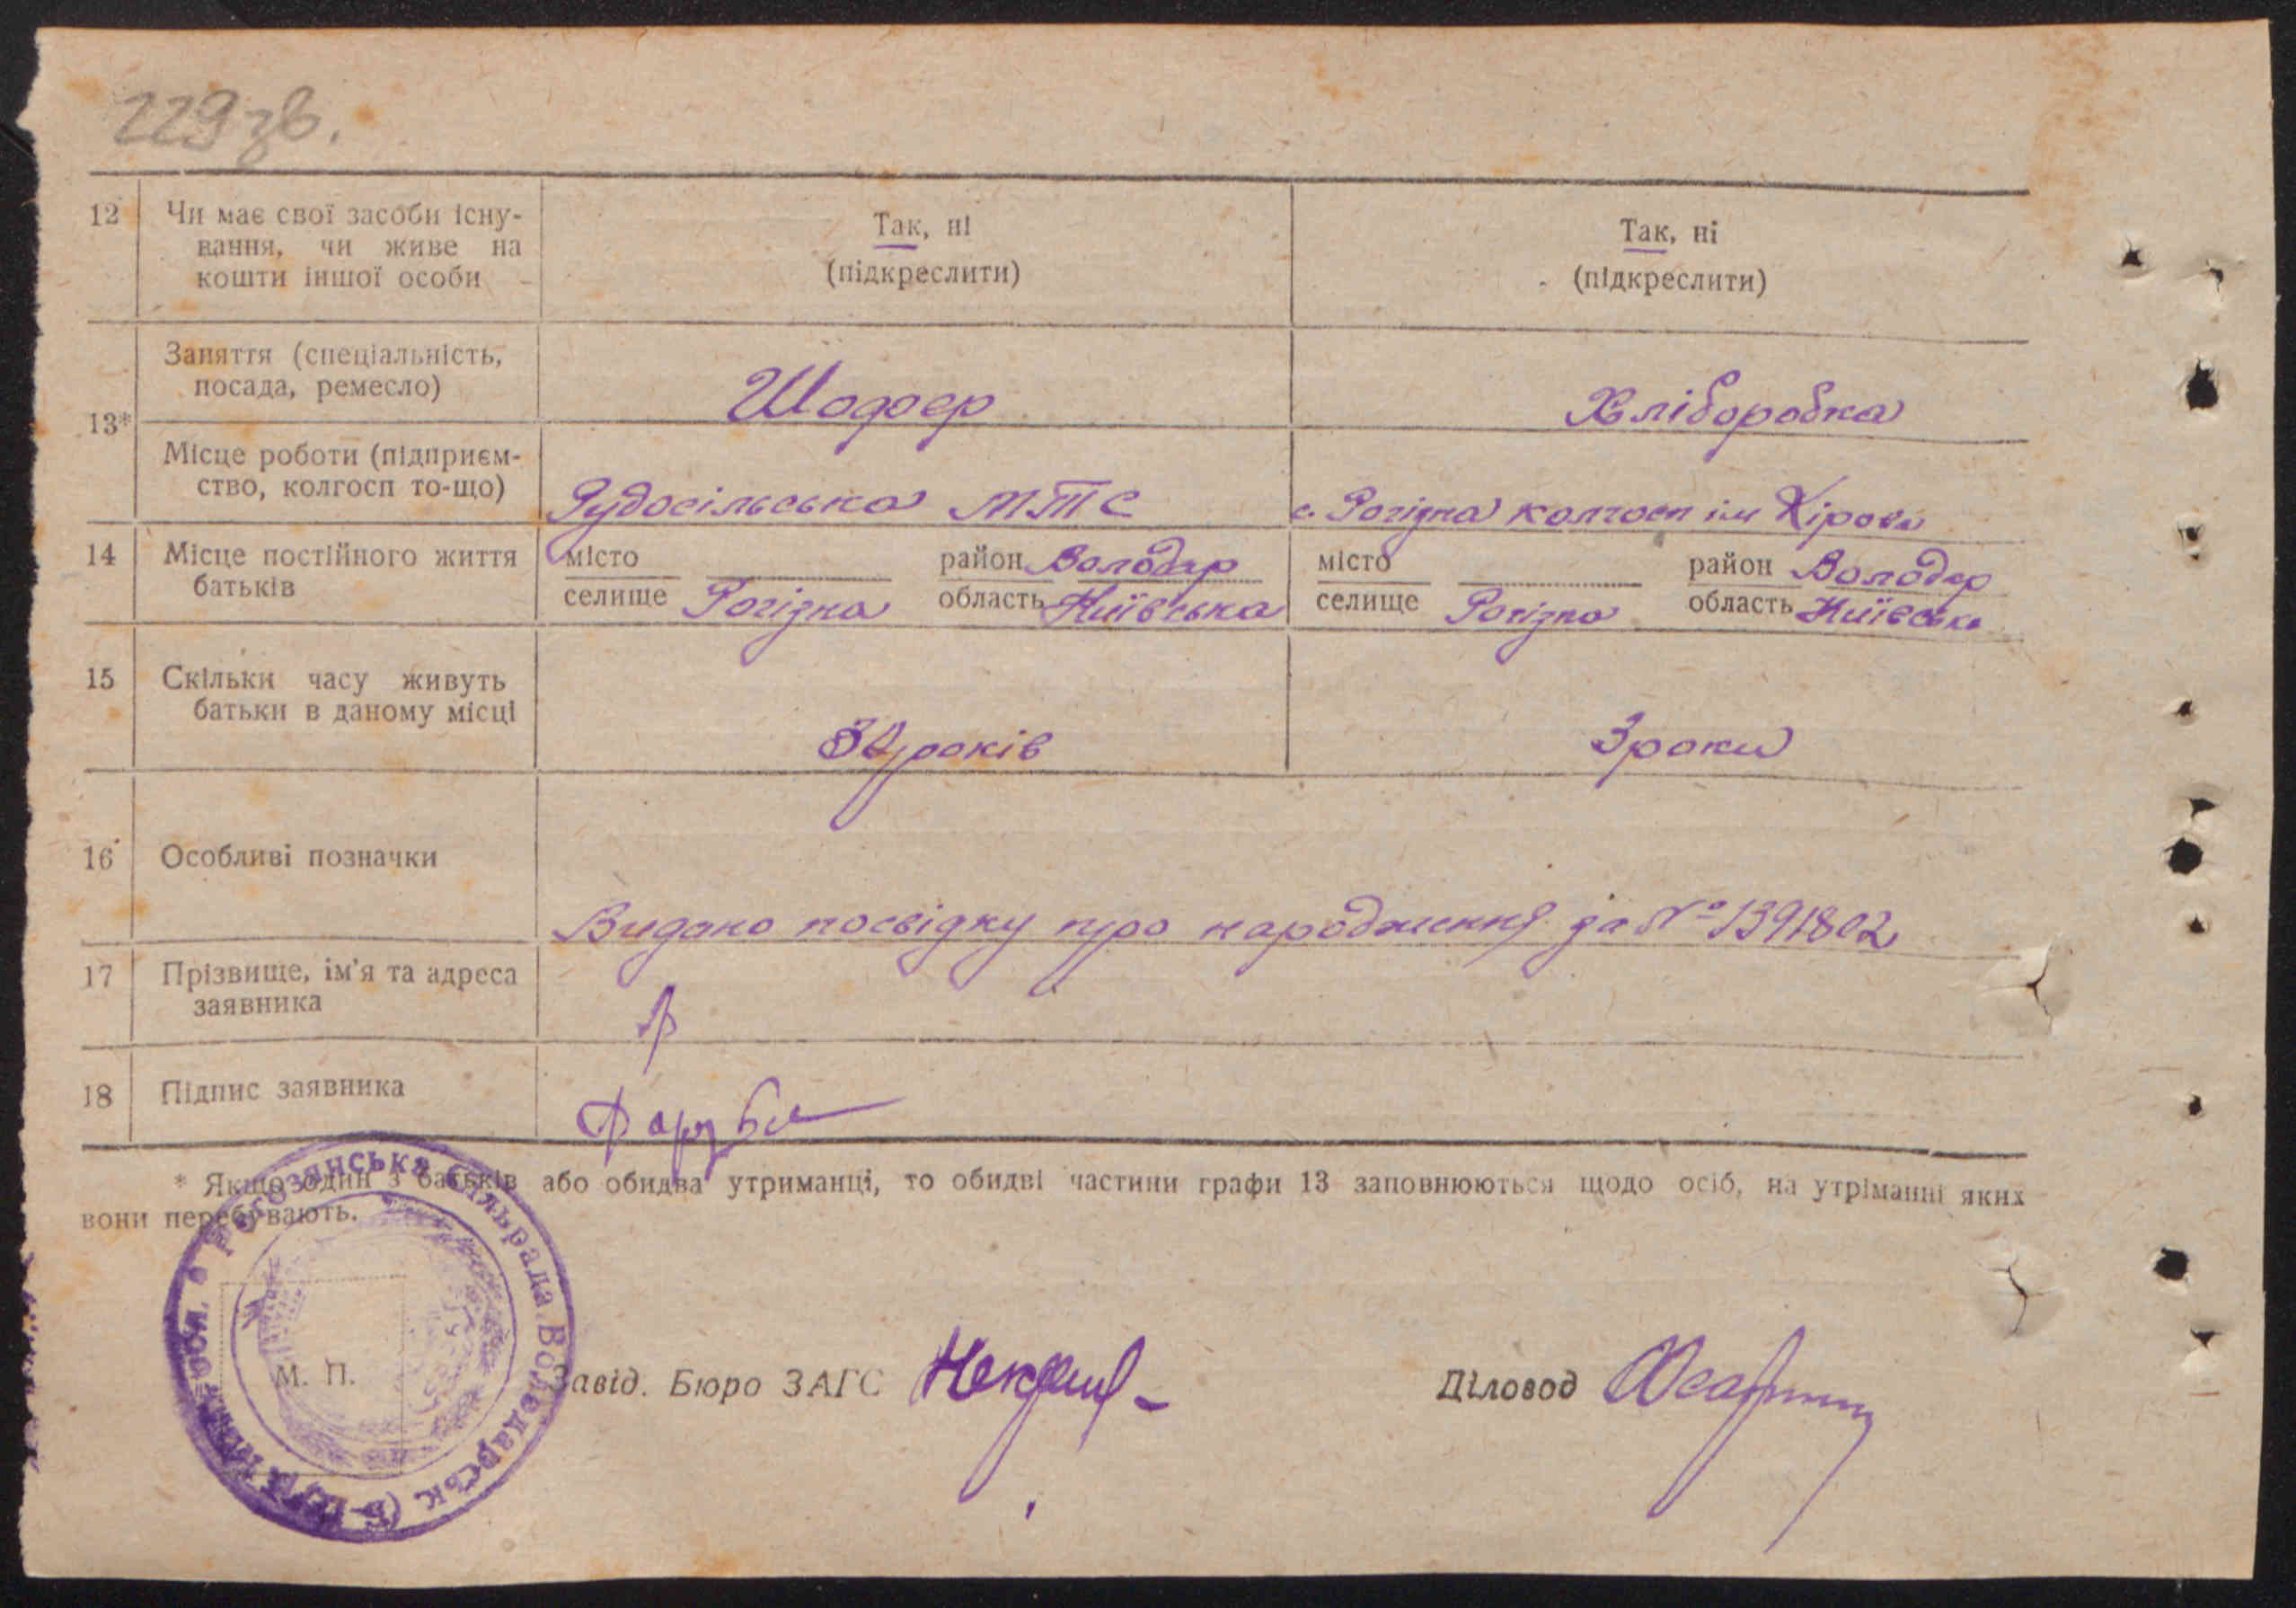 229 зв.
12 Чи має свої засоби існу-
вання, чи живе на
кошти іншої особи
Так, ні
(підкреслити)
Так, ні
(підкреслити)
13*
Заняття (спеціальність,
посада, ремесло)
Шофер
Хліборобка
Місце роботи (підприєм-
ство, колгосп то-що)
Рудосільська МТС
с. Рогізна колгосп ім Кірова
14 Місце постійного життя
батьків
місто
селище Рогізна
район Володар
область Київська
місто
селище Рогізна
район Володар
область Київська
15 Скільки часу живуть
батьки в даному місці
років
3 роки
16 Особливі позначки
Видано посвідку про народження за № 1391802
17 Прізвище, ім'я та адреса
заявника
18 Підпис заявника
* Якщо один з батьків або обидва утриманці, то обидві частини графи 13 заповнюються щодо осіб, на утріманні яких
вони перебувають.
сільрада Володарськ
М. П.
Завід. Бюро ЗАГС
Діловод